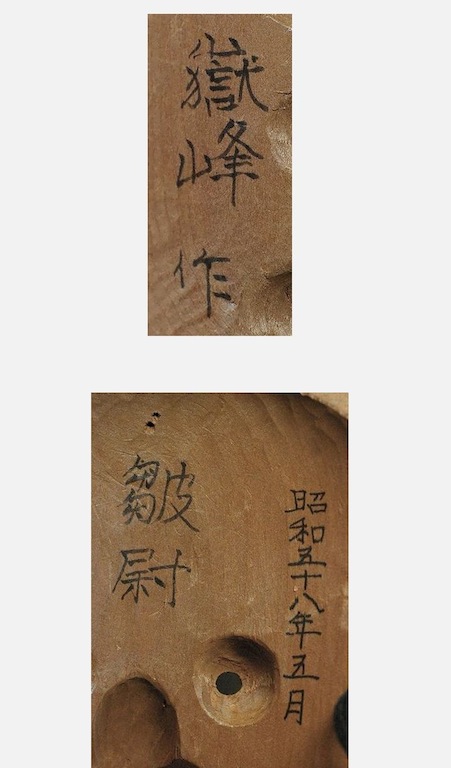 嶽峰作
昭和五十八年五月
皺尉